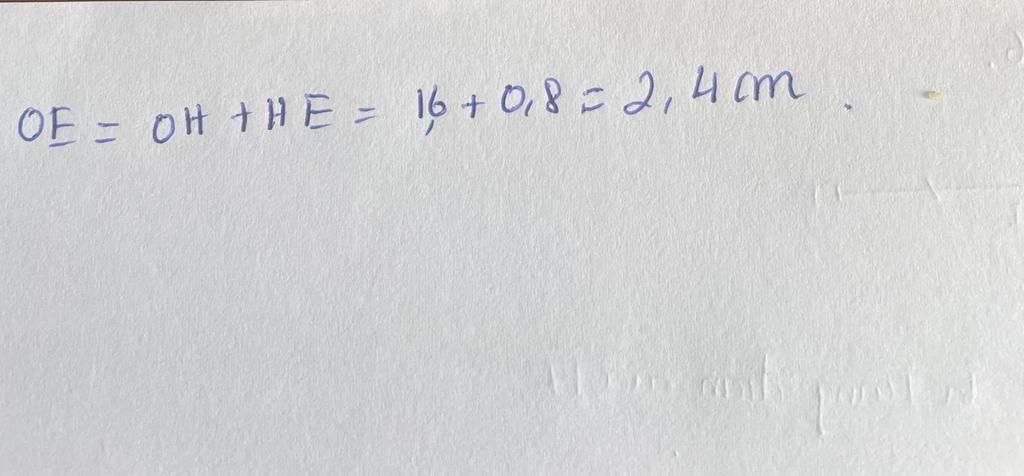 OE = OH + HE = 1,6 + 0,8 = 2,4 cm.